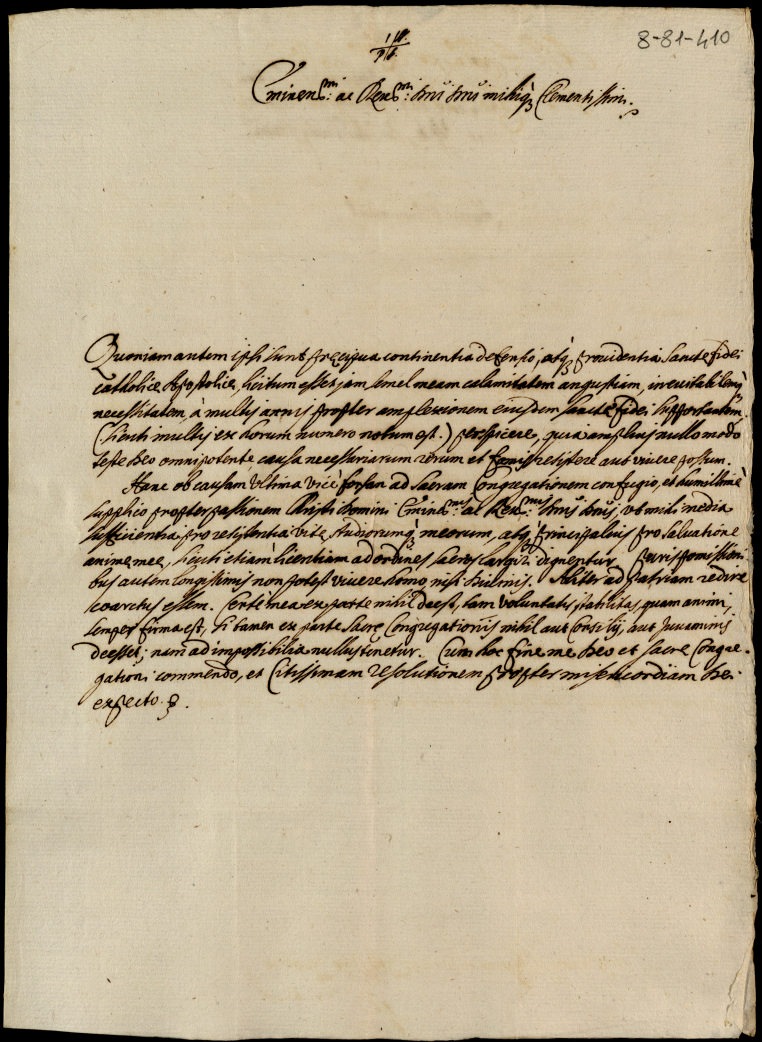 8-81-410
Eminen:mi ac Ren:mi dnī dnī mihiq₃ Clementissimi.
Quoniam autem ipsi sunt pręcipua continentia defensio, atq₃ providentia Sancte fidei
catholice Apostolice, licitum esset jam semel meam calamitatem angustiam, inevitabilemq₃
necessitatem, à multis annis propter amplexionem eiusdem sancte fidei supportantem
(sicuti multis ex horum numero notum est.) perspicere, quia amplius nullo modo
teste deo omnipotente, causa necessariarum rerum et resistere aut vivere possum.
Hanc ob causam ultima vice forsan ad Sacram Congregationem confugio, et humillimè
supplico propter passionem Christi domini Emin:mis ac Ren:mis dnīs dnīs, ut mihi media
sufficientia pro resistentia vite, studiorumq₃ meorum, atq₃ principalius pro salvatione
anime mee, sicuti etiam licentiam ad ordines sacros largiri dignentur. puris promissioni
bus autem longissimis non potest vivere homo, nisi . Aliter ad patriam redire
coarctus essem. Certe mea ex parte nihil deest, tam voluntatis stabilitas, quam animi,
semper firma est, si tamen ex parte Sacrę Congregationis nihil aut Consilij, aut Juvaminis
deesset; nam ad impossibilia nullus tinetur. Cum hoc fine me Deo et sacre Congre-
gationi commendo, et Citissimam resolutionem propter misericordiam Dei
expecto.